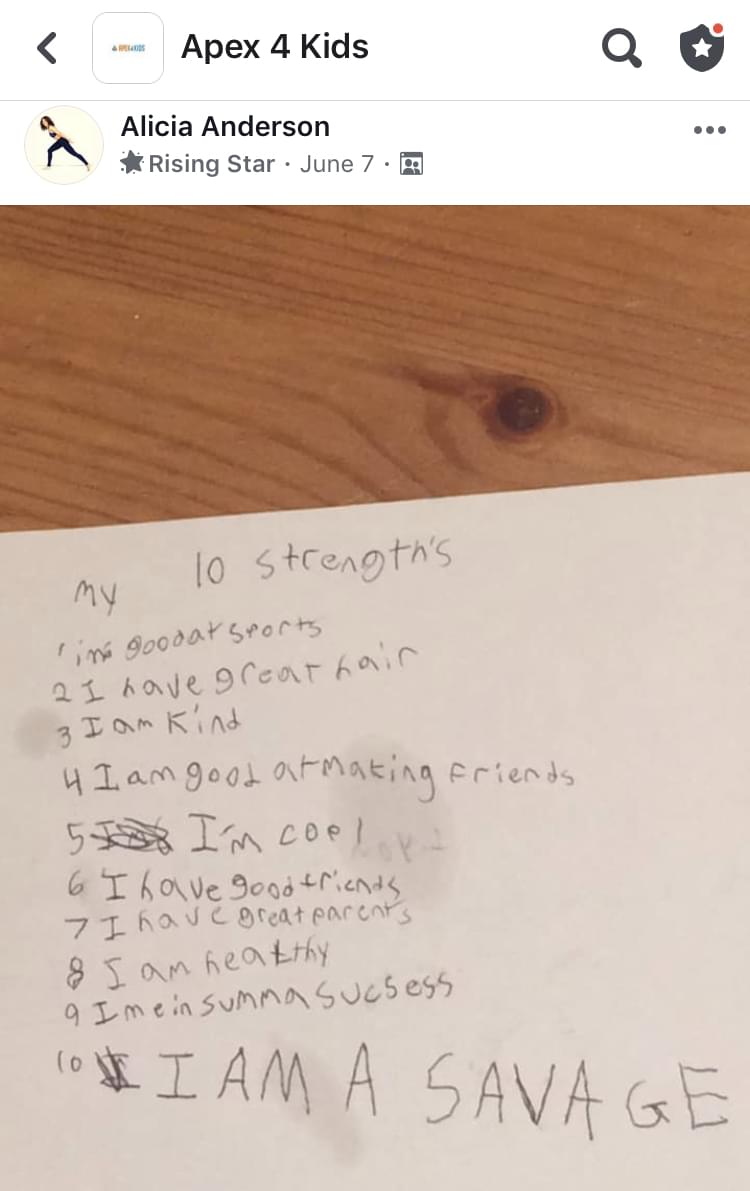 APEX4KIDS
Apex 4 Kids
Alicia Anderson
Rising Star · June 7 ·
My 10 strength's
1 im good at sports
2 I have great hair
3 I am kind
4 I am good at Making friends
5 I'm cool
6 I have good friends
7 I have great parents
8 I am healthy
9 I me in summa sucsess
10 I AM A SAVAGE